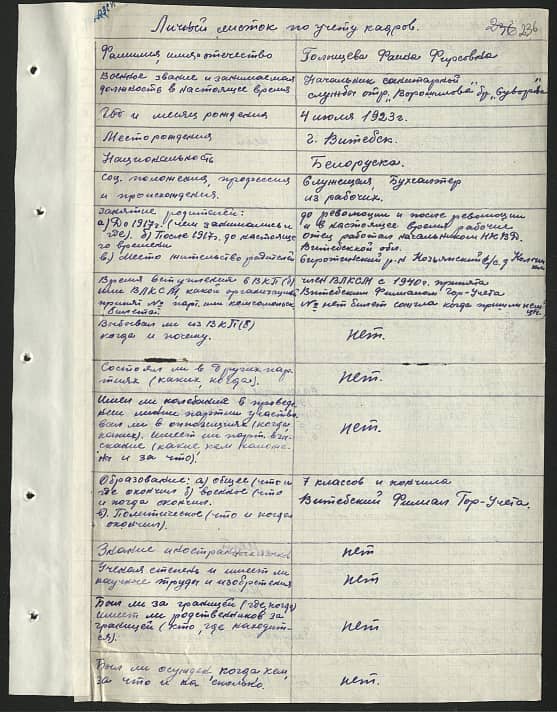 Личный листок по учету кадров.
236 236
Фамилия, имя отчество
Голышева Фаина Фирсовна
Военное звание и занимаемая
должность в настоящее время
Начальник санитарной
службы отр. "Ворошилова" бр. "Суворова"
Год и месяц рождения
4 июля 1923 г.
Место рождения
г. Витебск.
Национальность
Белоруска.
Соц. положения, профессия
и происхождения.
Служащая, Бухгалтер
из рабочих.
Занятие родителей:
а) До 1917г. (чем занимались и
где). б) После 1917г. до настояще
го времени
в) Место жительство родителей
до революции и после революции
и в настоящее время рабочие
отец работал начальником НКВД.
Витебской обл.
Сиротинский р-н с/с. д
Время вступления в ВКП(б)
или ВЛКСМ, какой организацией
принят № парт. или комсомольск.
билета
член ВЛКСМ с 1940г. принята
Витебским Филиалом Гор-Учета
№ нет билет сожгла когда пришли немцы.
Выбывал ли из ВКП(б)
когда и почему.
нет.
Состоял ли в других пар
тиях (каких, когда).
нет.
Имел ли колебание в проведе
нии линии партии участво
вал ли в оппозициях (когда,
каких). имеет ли парт. взы-
скание (какие кем наложе-
ны и за что).
нет.
Образование: а) общее (что и
где окончил б) военное (что
и когда окончил.
в). Политическое (что и когда
окончил).
7 классов и кончила
Витебский Филиал Гор-Учета.
Знание иностранных языков
нет
Ученая степень и имеет ли
научные труды и изобретения
нет
Был ли за границей (где, когда)
имеет ли родственников за
границей (кто, где находит-
ся).
нет
Был ли осужден когда кем,
за что и на сколько.
нет.